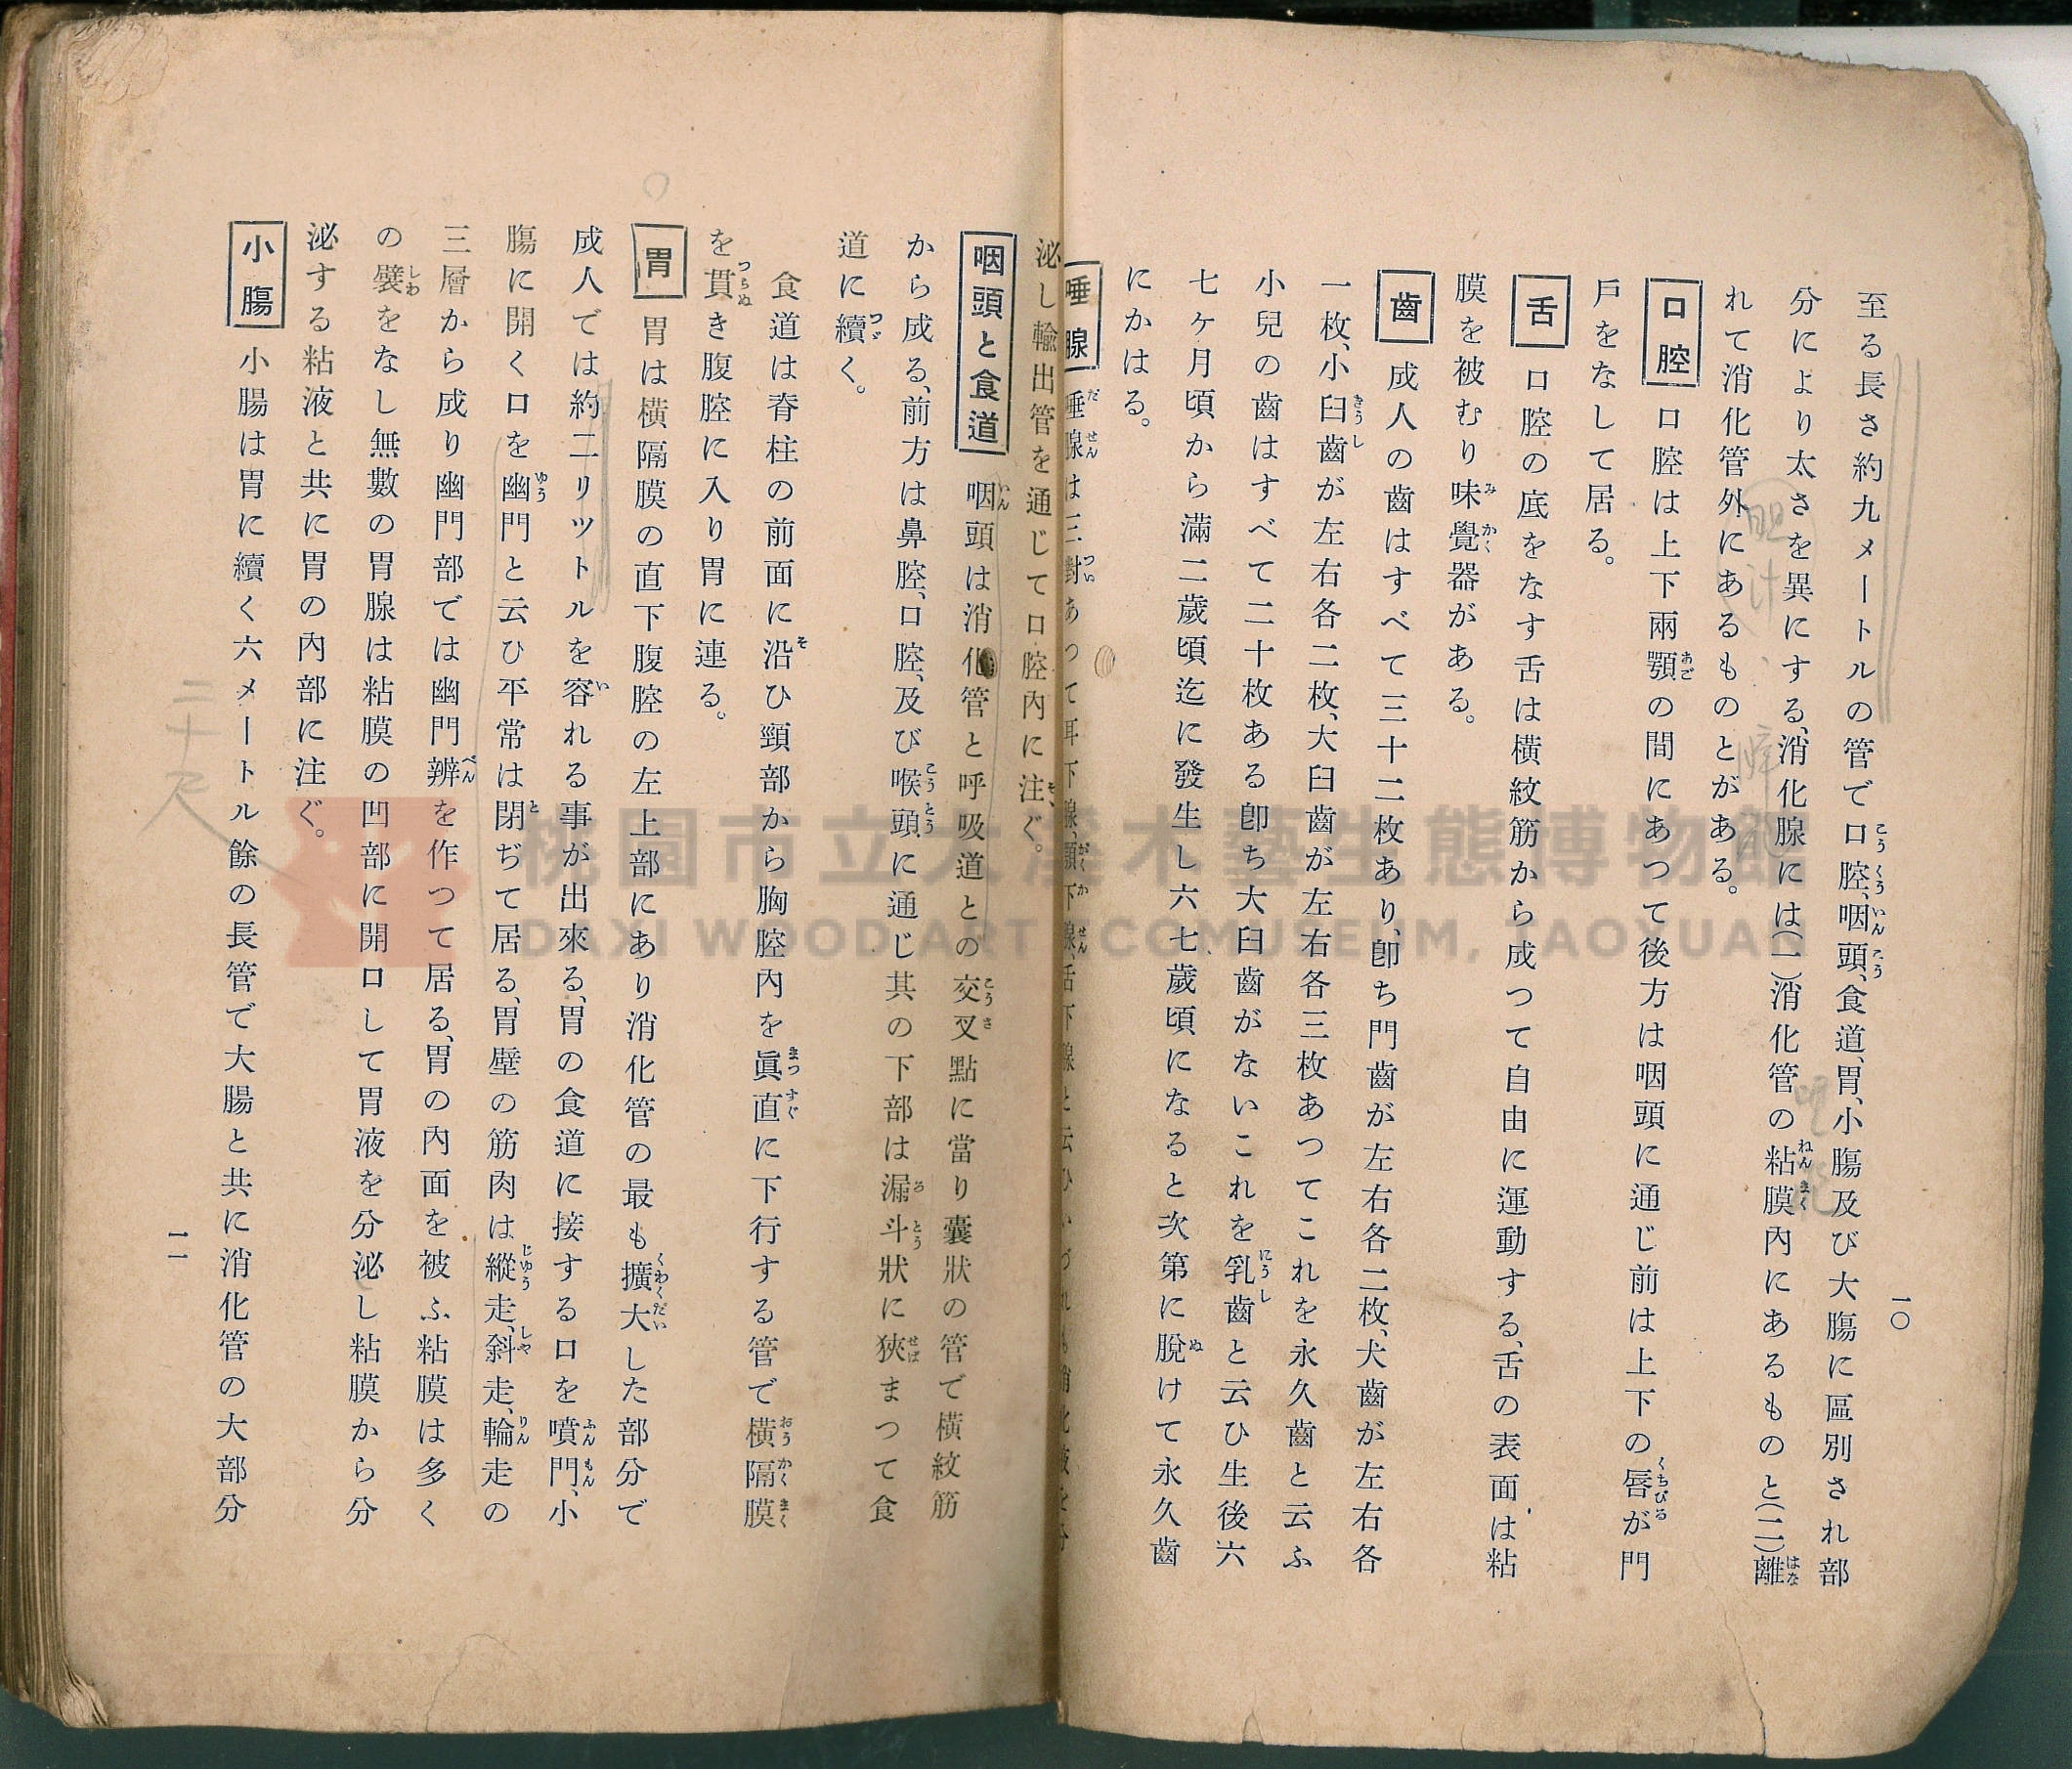 至る長さ約九メートルの管で口腔、咽頭、食道、胃、小膓及び大膓に區別され部
分により太さを異にする、消化腺には(一)消化管の粘膜內にあるものと(二)離
れて消化管外にあるものとがある。
口腔 口腔は上下兩顎の間にあつて後方は咽頭に通じ前は上下の唇が門
戶をなして居る。
舌 口腔の底をなす舌は橫紋筋から成つて自由に運動する、舌の表面は粘
膜を被むり味覺器がある。
齒 成人の齒はすべて三十二枚あり、卽ち門齒が左右各二枚、犬齒が左右各
一枚、小臼齒が左右各二枚、大臼齒が左右各三枚あつてこれを永久齒と云ふ
小兒の齒はすべて二十枚ある卽ち大臼齒がないこれを乳齒と云ひ生後六
七ヶ月頃から滿二歲頃迄に發生し六七歲頃になると次第に脫けて永久齒
にかはる。
唾腺 唾腺は三對あつて耳下腺、顎下腺、舌下腺と云ひいづれも消化液を分
一〇
泌し輸出管を通じて口腔內に注ぐ。
咽頭と食道 咽頭は消化管と呼吸道との交叉點に當り囊狀の管で橫紋筋
から成る、前方は鼻腔、口腔、及び喉頭に通じ其の下部は漏斗狀に狹まつて食
道に續く。
食道は脊柱の前面に沿ひ頸部から胸腔內を眞直に下行する管で橫隔膜
を貫き腹腔に入り胃に連る。
胃 胃は橫隔膜の直下腹腔の左上部にあり消化管の最も擴大した部分で
成人では約二リツトルを容れる事が出來る、胃の食道に接する口を噴門、小
膓に開く口を幽門と云ひ平常は閉ぢて居る、胃壁の筋肉は縱走、斜走、輪走の
三層から成り幽門部では幽門辨を作つて居る、胃の內面を被ふ粘膜は多く
の襞をなし無數の胃腺は粘膜の凹部に開口して胃液を分泌し粘膜から分
泌する粘液と共に胃の內部に注ぐ。
小膓 小膓は胃に續く六メートル餘の長管で大膓と共に消化管の大部分
二十尺
一一
桃園市立大溪木藝生態博物館
DAXI WOODART ECOMUSEUM, TAOYUAN